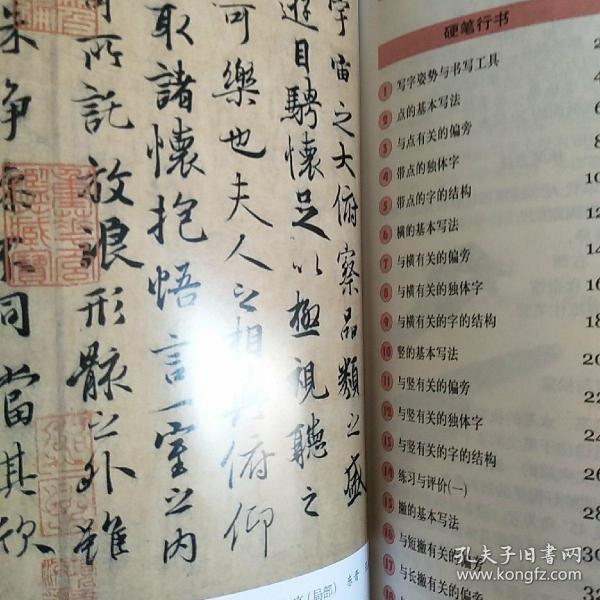 宇宙之大俯察品類之盛
遊目騁懷足以極視聽之
可樂也夫人之相與俯仰
取諸懷抱悟言一室之内
所託放浪形骸之外雖
同當其欣
（局部）
东晋
硬笔行书
2
① 写字姿势与书写工具 4
② 点的基本写法 6
③ 与点有关的偏旁 8
④ 带点的独体字 10
⑤ 带点的字的结构 12
⑥ 横的基本写法 14
⑦ 与横有关的偏旁 16
⑧ 与横有关的独体字 18
⑨ 与横有关的字的结构 20
⑩ 竖的基本写法 22
⑪ 与竖有关的偏旁 24
⑫ 与竖有关的独体字 26
⑬ 与竖有关的字的结构 28
⑭ 练习与评价(一) 30
⑮ 撇的基本写法 32
⑯ 与短撇有关的
⑰ 与长撇有关的
孔夫子旧书网
www.kongfz.com